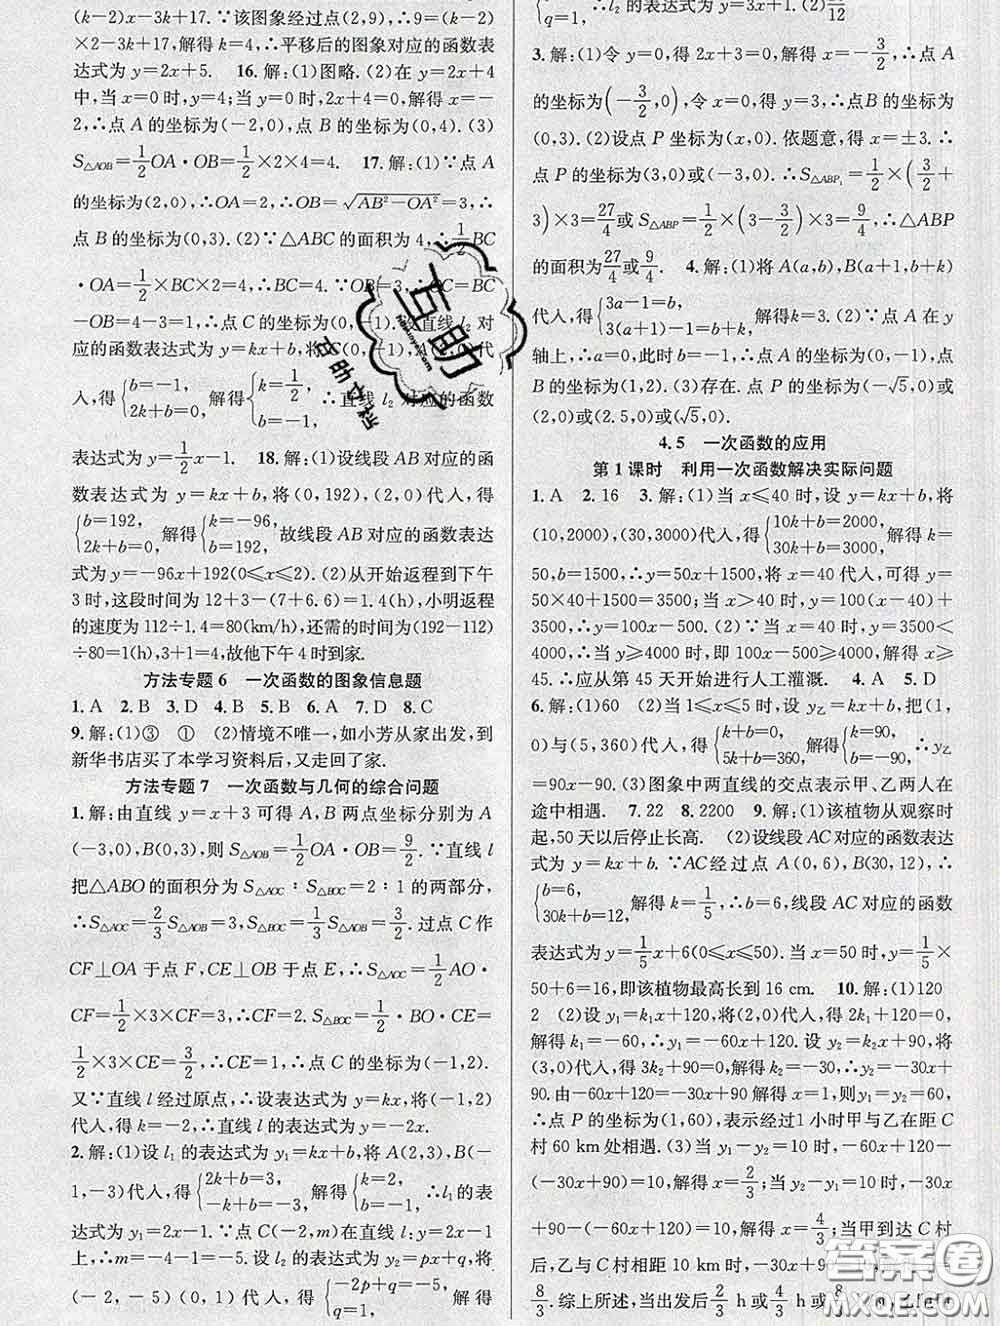 (k−2)x−3k+17. ∵该图象经过点(2,9),∴9=(k−2)
×2−3k+17,解得k=4,∴平移后的图象对应的函数表
达式为 y=2x+5. 16.解:(1)图略.(2)在 y=2x+4
中,当 x=0 时,y=4;当 y=0 时,2x+4=0,解得 x=−
2,∴点 A 的坐标为(−2,0),点 B 的坐标为(0,4).(3)
S△AOB=1/2 OA·OB=1/2×2×4=4. 17.解:(1)∵点 A
的坐标为(2,0),∴OA=2,∴OB=√(AB²−OA²)=3,∴
点 B 的坐标为(0,3).(2)∵△ABC 的面积为 4,∴1/2 BC
·OA=1/2×BC×2=4,∴BC=4. ∵OB=3,∴OC=BC
−OB=4−3=1,∴点 C 的坐标为(0,−1).设直线 l₂ 对
应的函数表达式为 y=kx+b,将 C(0,−1), 代
人,得{b=−1, 2k+b=0, 解得{k=1/2, b=−1. ∴直线 l₂ 对应的函数
表达式为 y=1/2 x−1. 18.解:(1)设线段 AB 对应的函
数表达式为 y=kx+b,将(0,192),(2,0)代人,得
{b=192, 2k+b=0, 解得{k=−96, b=192. 故线段 AB 对应的函数表达
式为 y=−96x+192(0⩽x⩽2).(2)从开始返程到下午
3 时,这段时间为 12+3−(7+6.6)=1.4(h),小明返程
的速度为112÷1.4=80(km/h),还需的时间为(192−112)
÷80=1(h),3+1=4,故他下午 4 时到家.
方法专题 6 一次函数的图象信息题
1. A 2. B 3. D 4. B 5. B 6. A 7. D 8. C
9.解:(1)③ ① (2)情境不唯一,如小芳从家出发,到
新华书店买了本学习资料后,又走回了家.
方法专题 7 一次函数与几何的综合问题
1.解:由直线 y=x+3 可得 A,B 两点坐标分别为 A
(−3,0),B(0,3),则 S△AOB=1/2 OA·OB=9/2. ∵直线 l
把△ABO 的面积分为 S△AOC : S△BOC=2:1 的两部分,
∴S△AOC=2/3 S△AOB=3,S△BOC=1/3 S△AOB=3/2. 过点 C 作
CF⊥OA 于点 F,CE⊥OB 于点 E,∴S△AOC=1/2 AO·
CF=1/2×3×CF=3,∴CF=2. S△BOC=1/2·BO·CE=
1/2×3×CE=3/2,∴CE=1,∴点 C 的坐标为(−1,2).
又∵直线 l 经过原点,∴设表达式为 y=kx,将(−1,2)
代人,得 k=−2,∴直线 l 的表达式为 y=−2x.
2.解:(1)设 l₁ 的表达式为 y₁=kx+b,将 A(2,3),B(−
1,−3)代人,得{2k+b=3, −k+b=−3, 解得{k=2, b=−1. ∴l₁ 的表
达式为 y=2x−1. ∵点 C(−2,m)在直线 l₁:y=2x−1
上,∴m=−4−1=−5. 设 l₂ 的表达式为 y₂=px+q,将
(−2,−5)(0,1)代人,得{−2p+q=−5, q=1, 解得
{ q=1, ∴l₂ 的表达式为 y=3x+1.(2) /12
3.解:(1)令 y=0,得 0=2x+3,解得 x=−3/2,∴点 A
的坐标为(−3/2,0),令 x=0,得 y=3,∴点B 的坐标为
(0,3).(2)设点 P 坐标为(x,0). 依题意,得 x=±3.∴
点 P 的坐标为(3,0)或(−3,0).∴S△ABP₁=1/2×(3/2+
3)×3=27/4或 S△ABP=1/2×(3−3/2)×3=9/4,∴△ABP
的面积为27/4或9/4. 4.解:(1)将 A(a,b),B(a+1,b+k)
代人,得{3a−1=b, 3(a+1)−1=b+k, 解得k=3.(2)∵点 A 在 y
轴上,∴a=0,此时 b=−1,∴点 A 的坐标为(0,−1),点
B 的坐标为(1,2).(3)存在. 点 P 的坐标为(−√5,0)或
(2,0)或(2.5,0)或(√5,0).
4.5 一次函数的应用
第 1 课时 利用一次函数解决实际问题
1. A 2. 16 3.解:(1)当 x⩽40 时,设 y=kx+b,将
(10,2000),(30,3000)代人,得{10k+b=2000, 30k+b=3000, 解得 k=
50,b=1500,∴y=50x+1500,将 x=40 代人,可得 y=
50×40+1500=3500;当 x>40 时,y=100(x−40)+
3500,∴y=100x−500.(2)∵当 x=40 时,y=3500<
4000,∴当 y⩾4000 时,100x−500⩾4000,解得 x⩾
45.∴应从第 45 天开始进行人工灌溉. 4. A 5. D
6.解:(1)60 (2)当 1⩽x⩽5 时,设 y乙=kx+b,把(1,
0),(5,360)代人,得{k+b=0, 5k+b=360, 解得{k=90, b=−90, ∴y乙
=90x−90.(3)图象中两直线的交点表示甲、乙两人在
途中相遇. 7. 22 8. 2200 9.解:(1)该植物从观察时
起,50 天以后停止长高. (2)设线段 AC对应的函数表达
式为 y=kx+b. ∵AC 经过点 A(0,6),B(30,12),∴
{b=6, 30k+b=12, 解得k=1/5,∴b=6,线段 AC 对应的函数
表达式为 y=1/5 x+6(0⩽x⩽50). 当 x=50 时,y=1/5×
50+6=16,即该植物最高长到 16 cm. 10.解:(1)120
2 (2)设 y₁=k₁x+120,将(2,0)代人,得 2k₁+120=0,
解得 k₁=−60,∴y₁=−60x+120. 设 y₂=k₂x+90,将
(3,0)代人,得 3k₂+90=0,解得 k₂=−30,∴y₂=−30x+
90. 由−60x+120=−30x+90 解得 x=1,则y₁=y₂=60,
∴点 P 的坐标为(1,60),表示经过1 小时甲与乙在距 C
村 60 km 处相遇.(3)当 y₁−y₂=10 时,−60x+120−
(−30x+90)=10,解得 x=2/3;当 y₂−y₁=10 时,−30x
+90−(−60x+120)=10,解得 x=4/3;当甲到达 C 村
后,乙与 C 村相距 10 km 时,−30x+90=10,解得 x=
8/3. 综上所述,当出发后2/3 h或4/3 h或8/3
互助
互助文档
答案圈
MXQE.COM